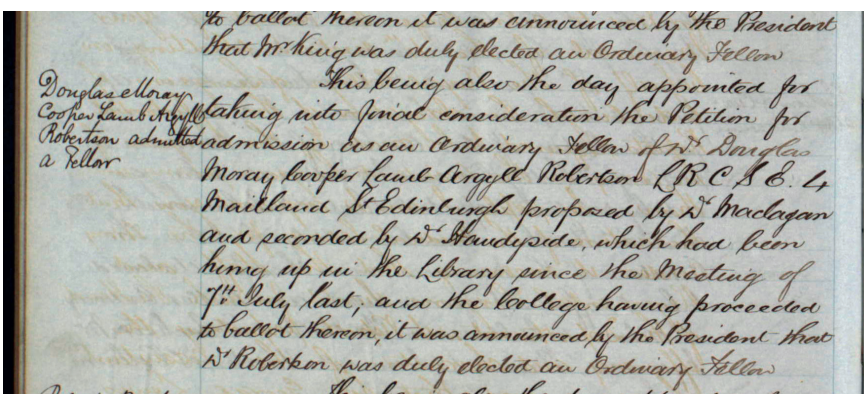 to ballot thereon it was announced by the President
that Mr. King was duly elected an Ordinary Fellow
Douglas Moray
Cooper Lamb Argyll
Robertson admitted
a Fellow
This being also the day appointed for
taking into final consideration the Petition for
admission as an Ordinary Fellow of Dr. Douglas
Moray Cooper Lamb Argyll Robertson L R C S E. 4
Maitland St Edinburgh proposed by Dr Maclagan
and seconded by Dr Handyside, which had been
hung up in the Library since the Meeting of
7th July last, and the College having proceeded
to ballot thereon, it was announced by the President that
Dr Robertson was duly elected an Ordinary Fellow
This being also the day